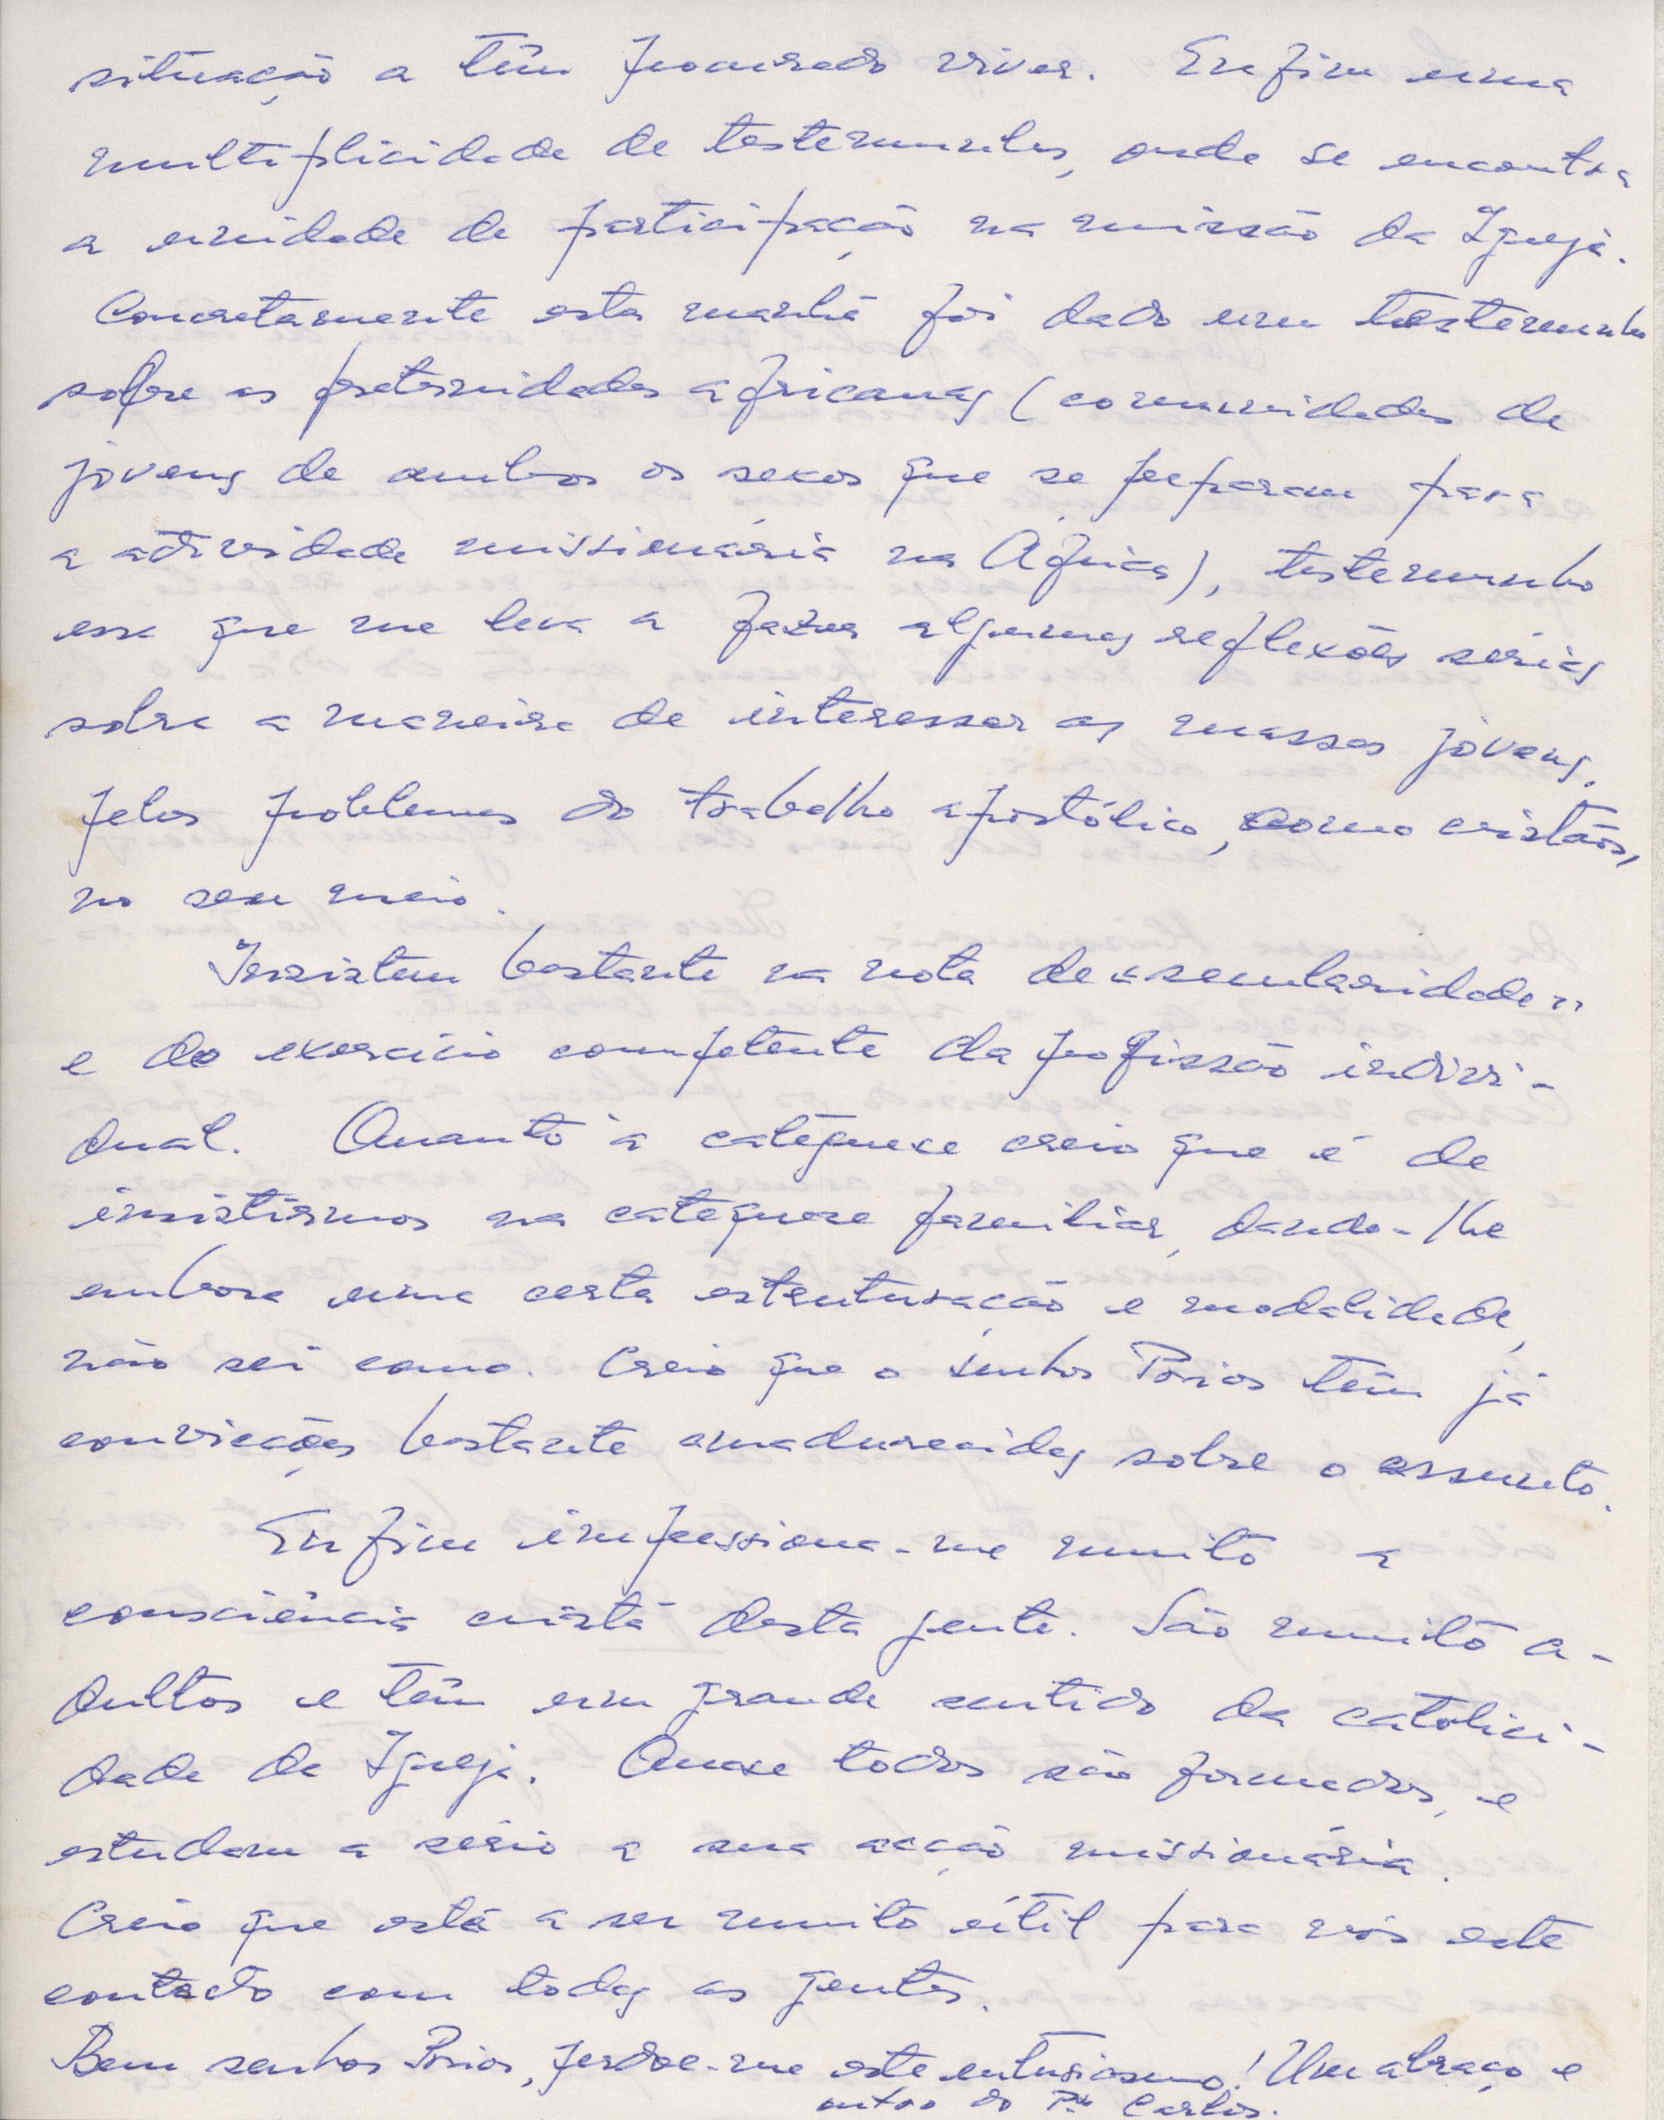 situação a têm procurado viver. Enfim uma
multiplicidade de testemunhos, onde se encontra
a unidade de participação na missão da Igreja.
Concretamente esta manhã foi dado um testemunho
sobre as fraternidades africanas (comunidades de
jóvens de ambos os sexos que se preparam para
a actividade missionária na África), testemunho
esse que me leva a fazer algumas reflexões sérias
sobre a maneira de interessar as massas jóvens,
pelos problemas do trabalho apostólico, como cristãos,
no seu meio.
Insistem bastante na nota de «secularidade»
e do exercício competente da profissão indivi-
dual. Quanto à catequese creio que é de
insistirmos na catequese familiar, dando-lhe
embora uma certa estruturação e modalidade,
não sei como. Creio que o senhor Prior têm já
convicções bastante amadurecidas sobre o assunto.
Enfim impressiona-me muito a
consciência cristã desta gente. São muito a-
dultos e têm um grande sentido da catolici-
dade da Igreja. Quase todos são formados, e
estudam a sério a sua acção missionária.
Creio que está a ser muito útil para nós este
contacto com todas as gentes.
Bem senhor Prior, perdoe-me este entusiasmo! Um abraço e
outro do Pe Carlos.